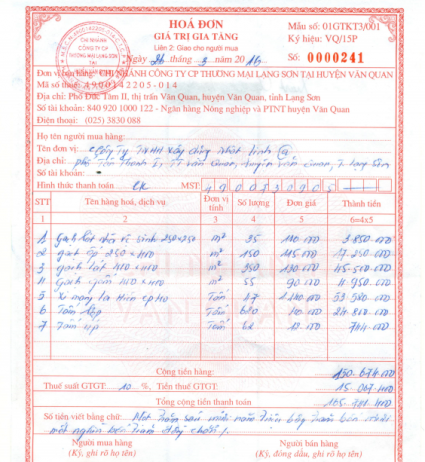 HOÁ ĐƠN
GIÁ TRỊ GIA TĂNG
Liên 2: Giao cho người mua
Ngày 26 tháng 3 năm 2016
Mẫu số: 01GTKT3/001
Ký hiệu: VQ/15P
Số: 0000241
CHI NHÁNH
CÔNG TY CP
THƯƠNG MẠI LẠNG SƠN
TẠI
Đơn vị bán hàng: CHI NHÁNH CÔNG TY CP THƯƠNG MẠI LẠNG SƠN TẠI HUYỆN VĂN QUAN
Mã số thuế: 4900142205-014
Địa chỉ: Phố Đức Tâm II, thị trấn Văn Quan, huyện Văn Quan, tỉnh Lạng Sơn
Số tài khoản: 840 920 1000 122 - Ngân hàng Nông nghiệp và PTNT huyện Văn Quan
Điện thoại: (025) 3830 088
Họ tên người mua hàng:
Tên đơn vị: Công Ty TNHH xây dựng
Địa chỉ: phố Tân Thanh I, TT Văn Quan, huyện Văn Quan, T. Lạng Sơn
Số tài khoản:
Hình thức thanh toán CK MST:
STT Tên hàng hoá, dịch vụ Đơn vị tính Số lượng Đơn giá Thành tiền
1 2 3 4 5 6=4x5
1 gạch lát nhà vệ sinh 250x250 m² 35 110.000 3.850.000
2 gạch ốp 250 x 400 m² 150 115.000 17.250.000
3 gạch lát 400 x 400 m² 350 130.000 45.500.000
4 gạch gốm 400 x 400 m² 55 90.000 4.950.000
5 Tấm 47 1.140.000 53.580.000
6 Tấm lợp Tấm 620 40.000 24.800.000
7 Tấm úp Tấm 62 12.000 744.000
Cộng tiền hàng: 150.674.000
Thuế suất GTGT: 10 %, Tiền thuế GTGT: 15.067.400
Tổng cộng tiền thanh toán 165.741.400
Số tiền viết bằng chữ: Một trăm sáu mươi năm triệu bảy trăm bốn mươi
mốt nghìn bốn trăm đồng chẵn /.
Người mua hàng
(Ký, ghi rõ họ tên)
Người bán hàng
(Ký, đóng dấu, ghi rõ họ tên)